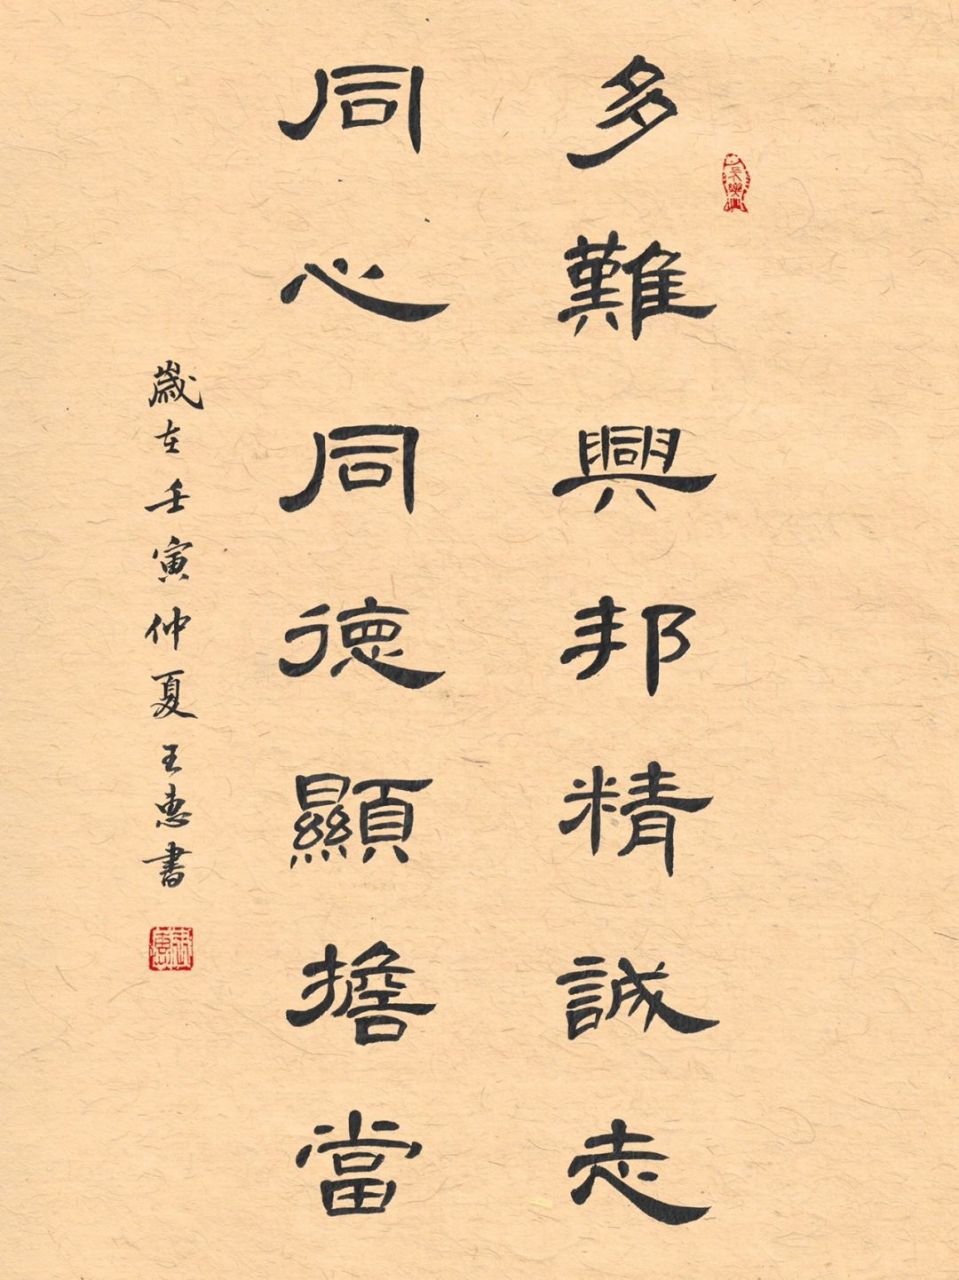 多難興邦精誠志
同心同德顯擔當
歲在壬寅仲夏王惠書